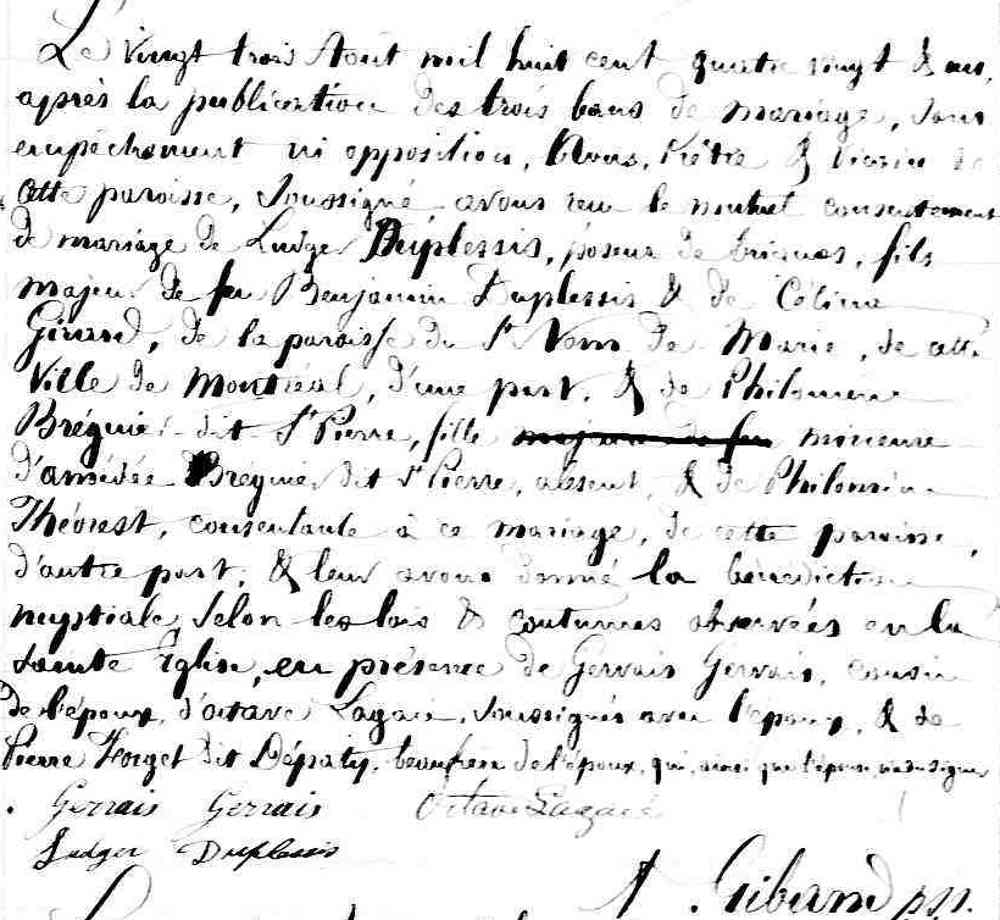 Le vingt trois Août mil huit cent quatre vingt & un,
après la publication des trois bans de mariage, sans
empêchement ni opposition, Nous, Prêtre & Vicaire de
cette paroisse, Soussigné, avons reçu le mutuel consentement
de mariage de Ludger Duplessis, poseur de briques, fils
majeur de feu Benjamin Duplessis & de Célina
Girard, de la paroisse du St Nom de Marie, de cette
Ville de Montréal, d'une part, & de Philomène
Bréguier dit St Pierre, fille majeure de feu mineure
d'amédée Bréguier dit St Pierre, absent, & de Philomène
Théorest, consentante à ce mariage, de cette paroisse,
d'autre part, & leur avons donné la bénédiction
nuptiale selon les lois & coutumes observées en la
Sainte Eglise, en présence de Gervais Gervais, cousin
de l'époux, d'octave Lagacé, soussignés avec l'époux, & de
Pierre Forget dit Dépaty, beaufrère de l'époux, qui, ainsi que l'épouse
Gervais Gervais Octave Lagacé
Ludger Duplessis
Giband pss.